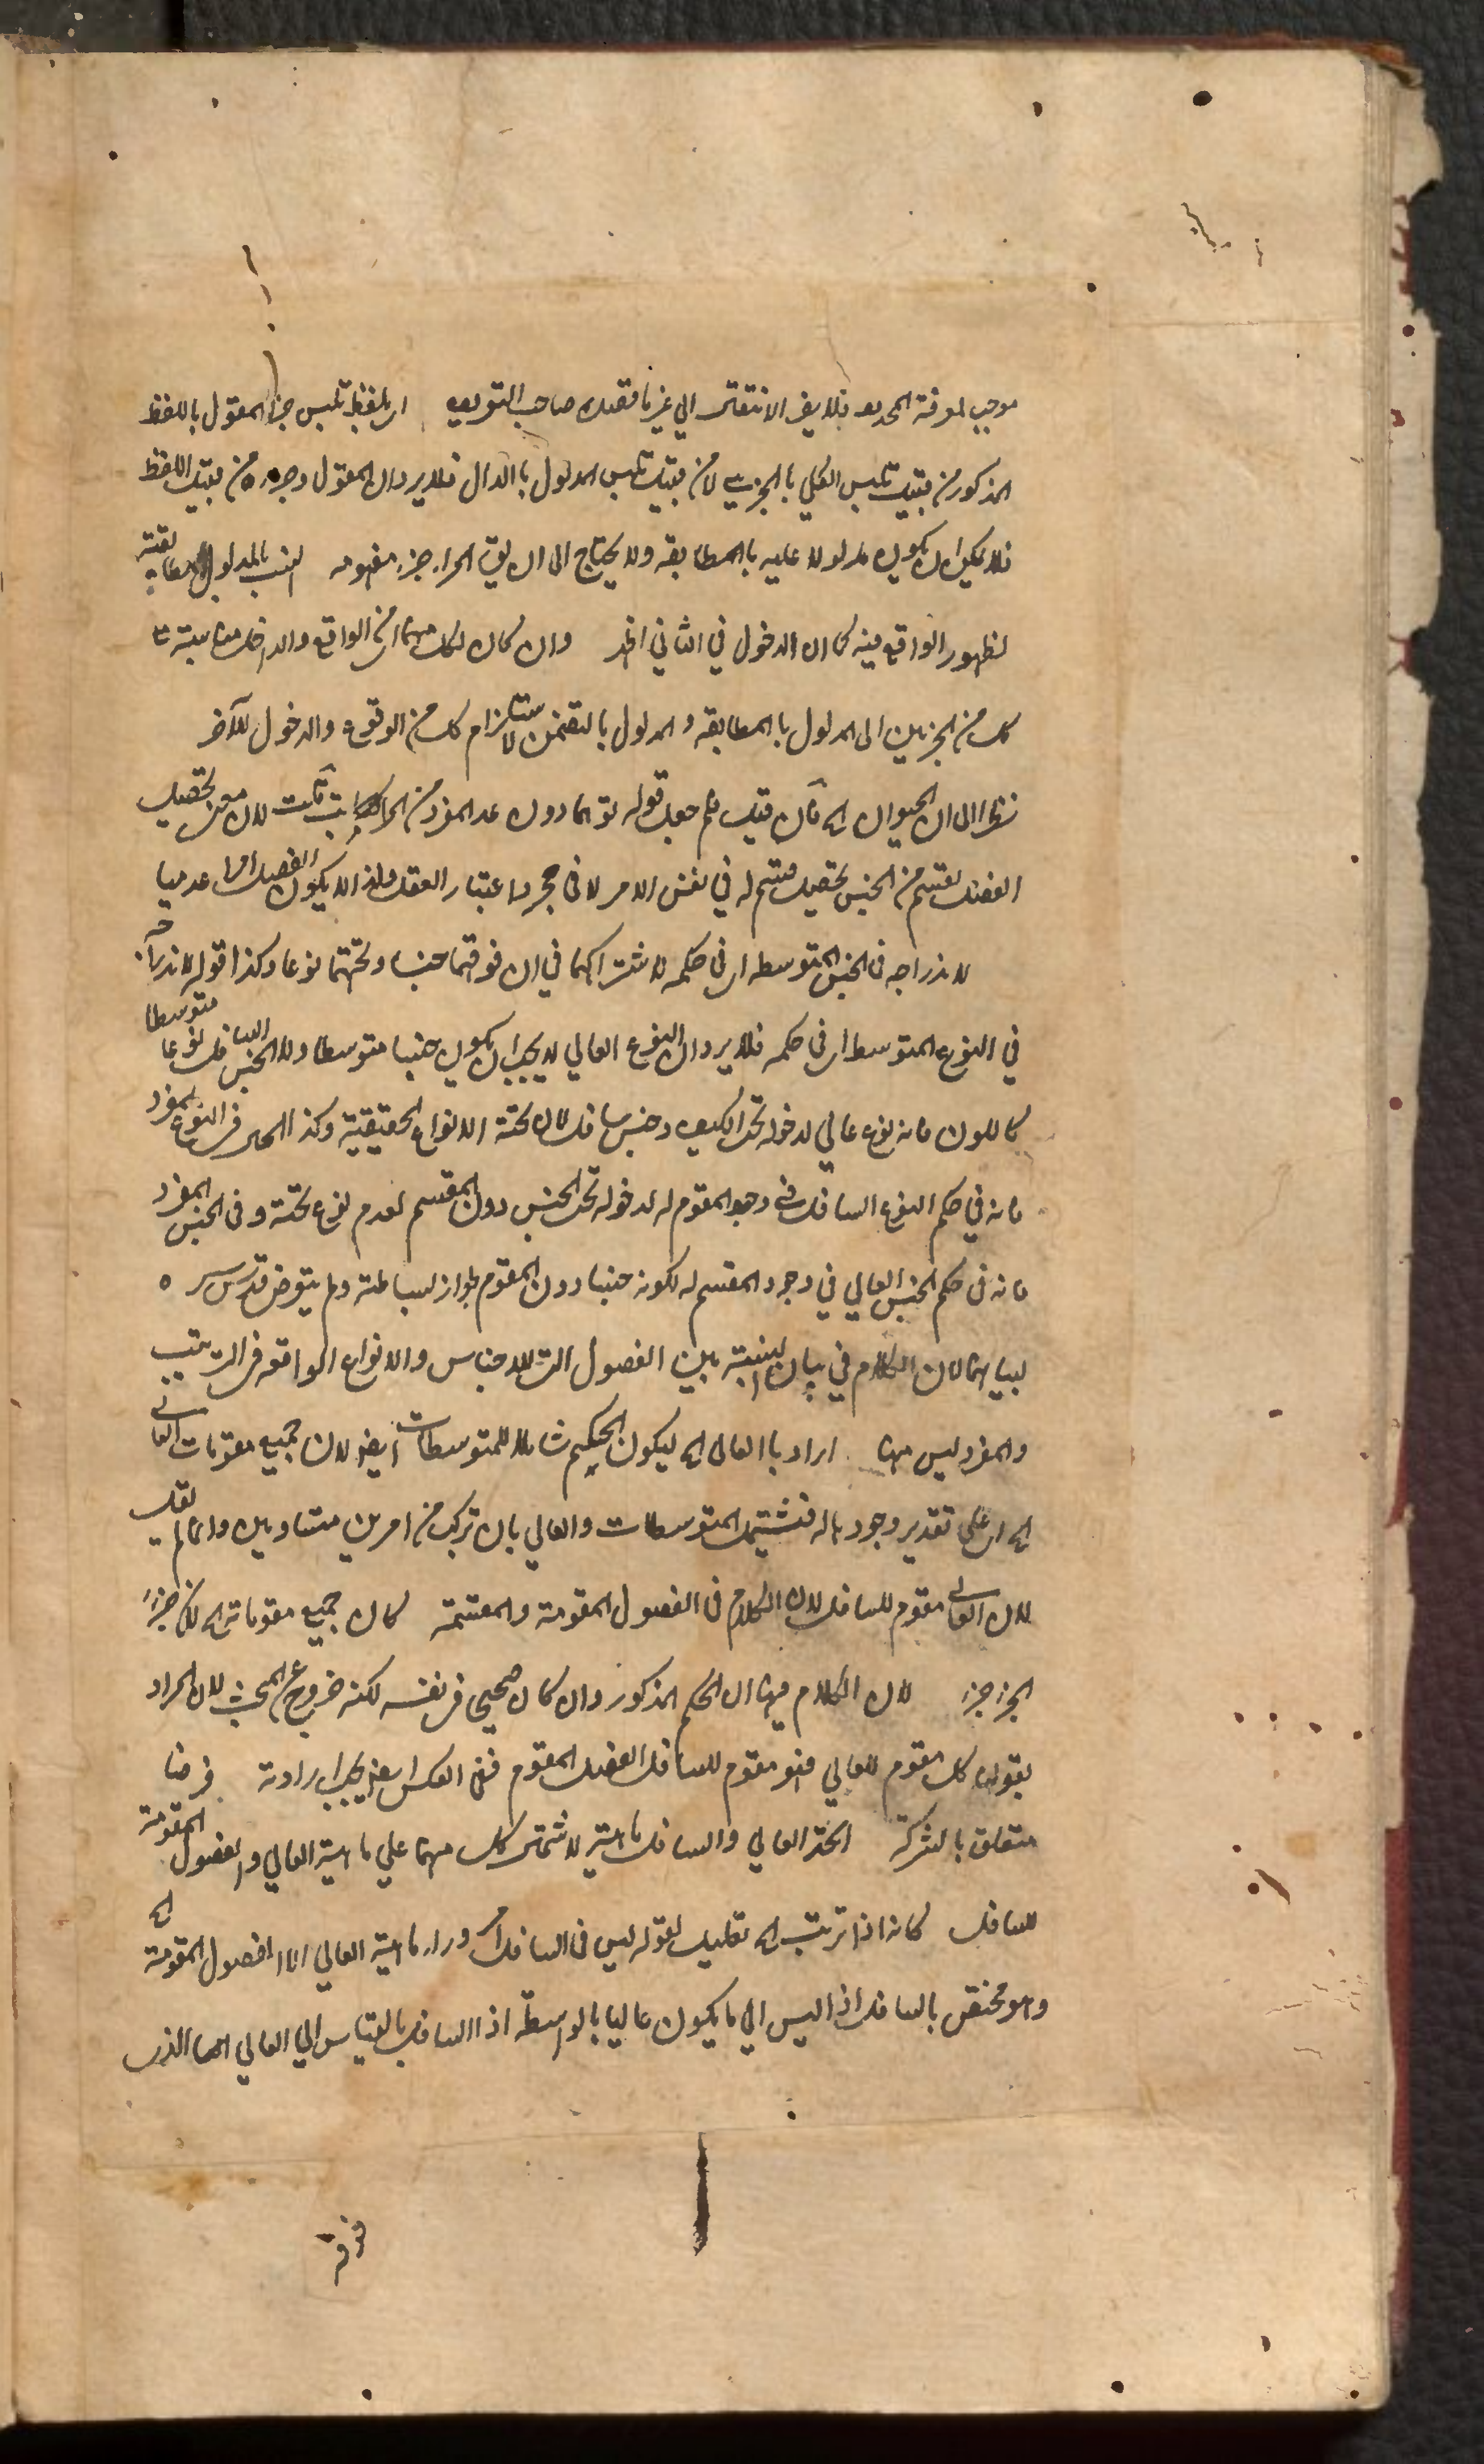 موجب لمعرفة المحدود فلا يضر الانتقال الى غيرنا فقيل صاحب التعريف اى بلفظ تلبس جزء المقول باللفظ
المذكور من قبيل تلبس الكلي بالجزئي لا من قبيل تلبس المدلول بالدال فلا يرد ان المقول وجزءه من قبيل اللفظ
فلا يمكن ان يكون مدلولا عليه بالمطابقة ولا يحتاج الى ان يق المراد جزء مفهومه انسب بالمدلول مطابقة
لظهور الواقع فيه كما ان الدخول في الثاني اظهر وان كان لكل منهما اى من الواقع والداخل مناسبة
كل من الجزئين الى المدلول بالمطابقة والمدلول بالتضمن لاستلزام كل من الوقوع والدخول للآخر
نظرا الى ان الحيوان اه فان قيل فلم جعل قوله قوتها دون عد المفرد من المراتب قلت لان معنى تحصيل
الفصل لقسم من الجنس تحصيل قسم له في نفس الامر لا في مجرد اعتبار العقل ولذا لا يكون الفصل امرا عدميا
لاندراجه في الجنس المتوسط اى في حكمه لاشتراكهما في ان فوقهما جنسا وتحتهما نوعا وكذا قوله لاندراجه
في النوع المتوسط اى في حكمه فلا يرد ان النوع العالي لا يجب ان يكون جنسا متوسطا ولا الجنس السافل نوعا متوسطا
كاللون فانه نوع عالي لدخوله تحت الكيف وجنس سافل لان تحته الانواع الحقيقية وكذا الحال في النوع المفرد
فانه في حكم النوع السافل في وجود المقوم له لدخوله تحت الجنس دون المقسم لعدم نوع تحته وفي الجنس المفرد
فانه في حكم الجنس العالي في وجود المقسم له لكونه جنسا دون المقوم لجواز بساطته ولم يتعرض قدس سره
لبيانهما لان الكلام في بيان النسبة بين الفصول التى للاجناس والانواع الواقعة في الترتيب
والمفرد ليس منها اراد بالعالى اه ليكون الحكم شاملا للمتوسطات ايضا لان جميع مقومات العالى
اه اى على تقدير وجودها له فتشتمل المتوسطات والعالي بان تركب من امرين متساويين وانما لم يقل
لان العالى مقوم للسافل لان الكلام في الفصول المقومة والمقسمة كان جميع مقوماته اه لان جزء
الجزء جزء لان الكلام فيها ان الحكم المذكور وان كان صحيحا في نفسه لكنه خروج عن المبحث لان المراد
بقوله كل مقوم للعالي فهو مقوم للسافل الفصل المقوم ففى العكس ايضا يجب ارادته فرضا
متعلق بالشركة اتحد العالي والسافل ماهية لاشتمال كل منهما على ماهية العالي والفصول المقومة
للسافل كانه اذا ترتب اه تعليل لقوله ليس في السافل وراء ماهية العالي الا الفصول المقومة اه
وهو مختص بالسافل اذ ليس الى ما يكون عاليا بالواسطة اذ السافل بالقياس الى العالي انما الذى